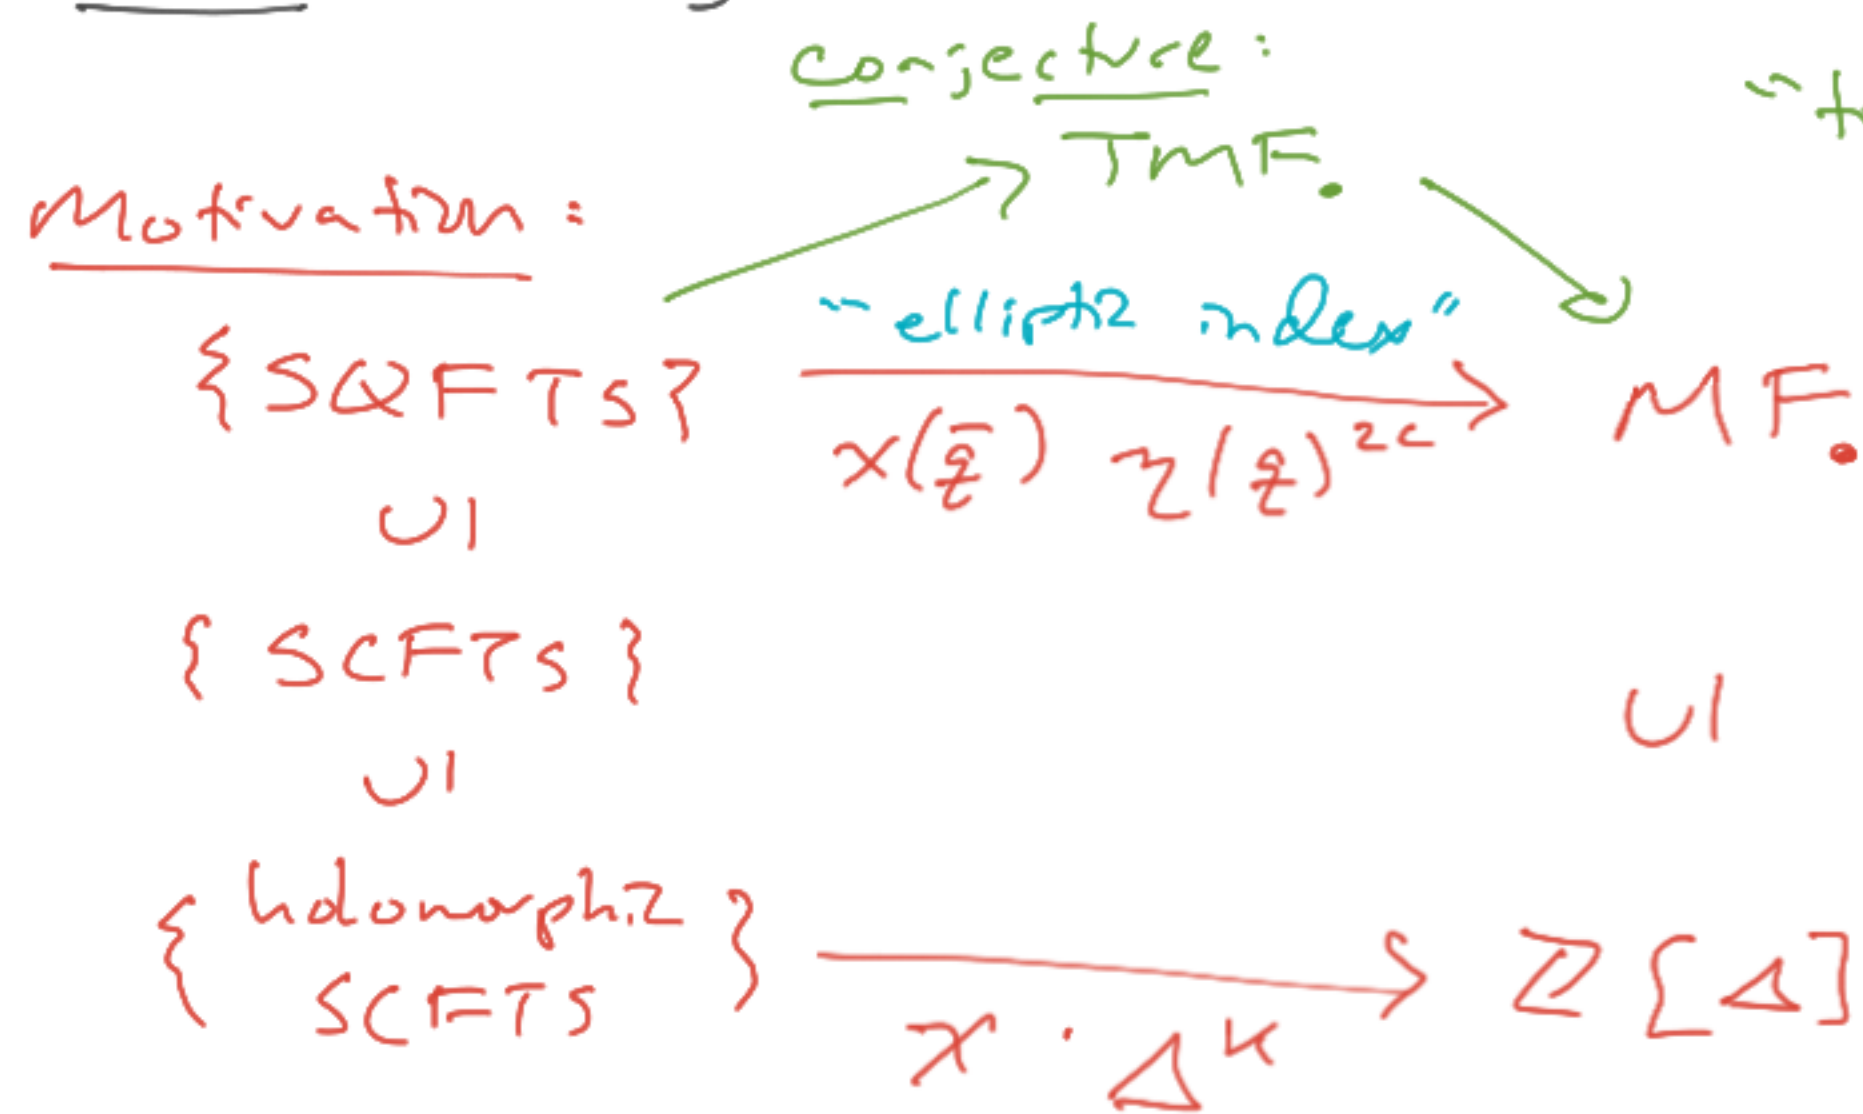 conjecture:
TMF.
Motivation:
"elliptic index"
{SQFTs} MF.
χ(q̄) η(q)^2c
∪|
{ SCFTs }
∪|
∪|
{ holomorphic SCFTs } Z[Δ]
χ · Δ^k